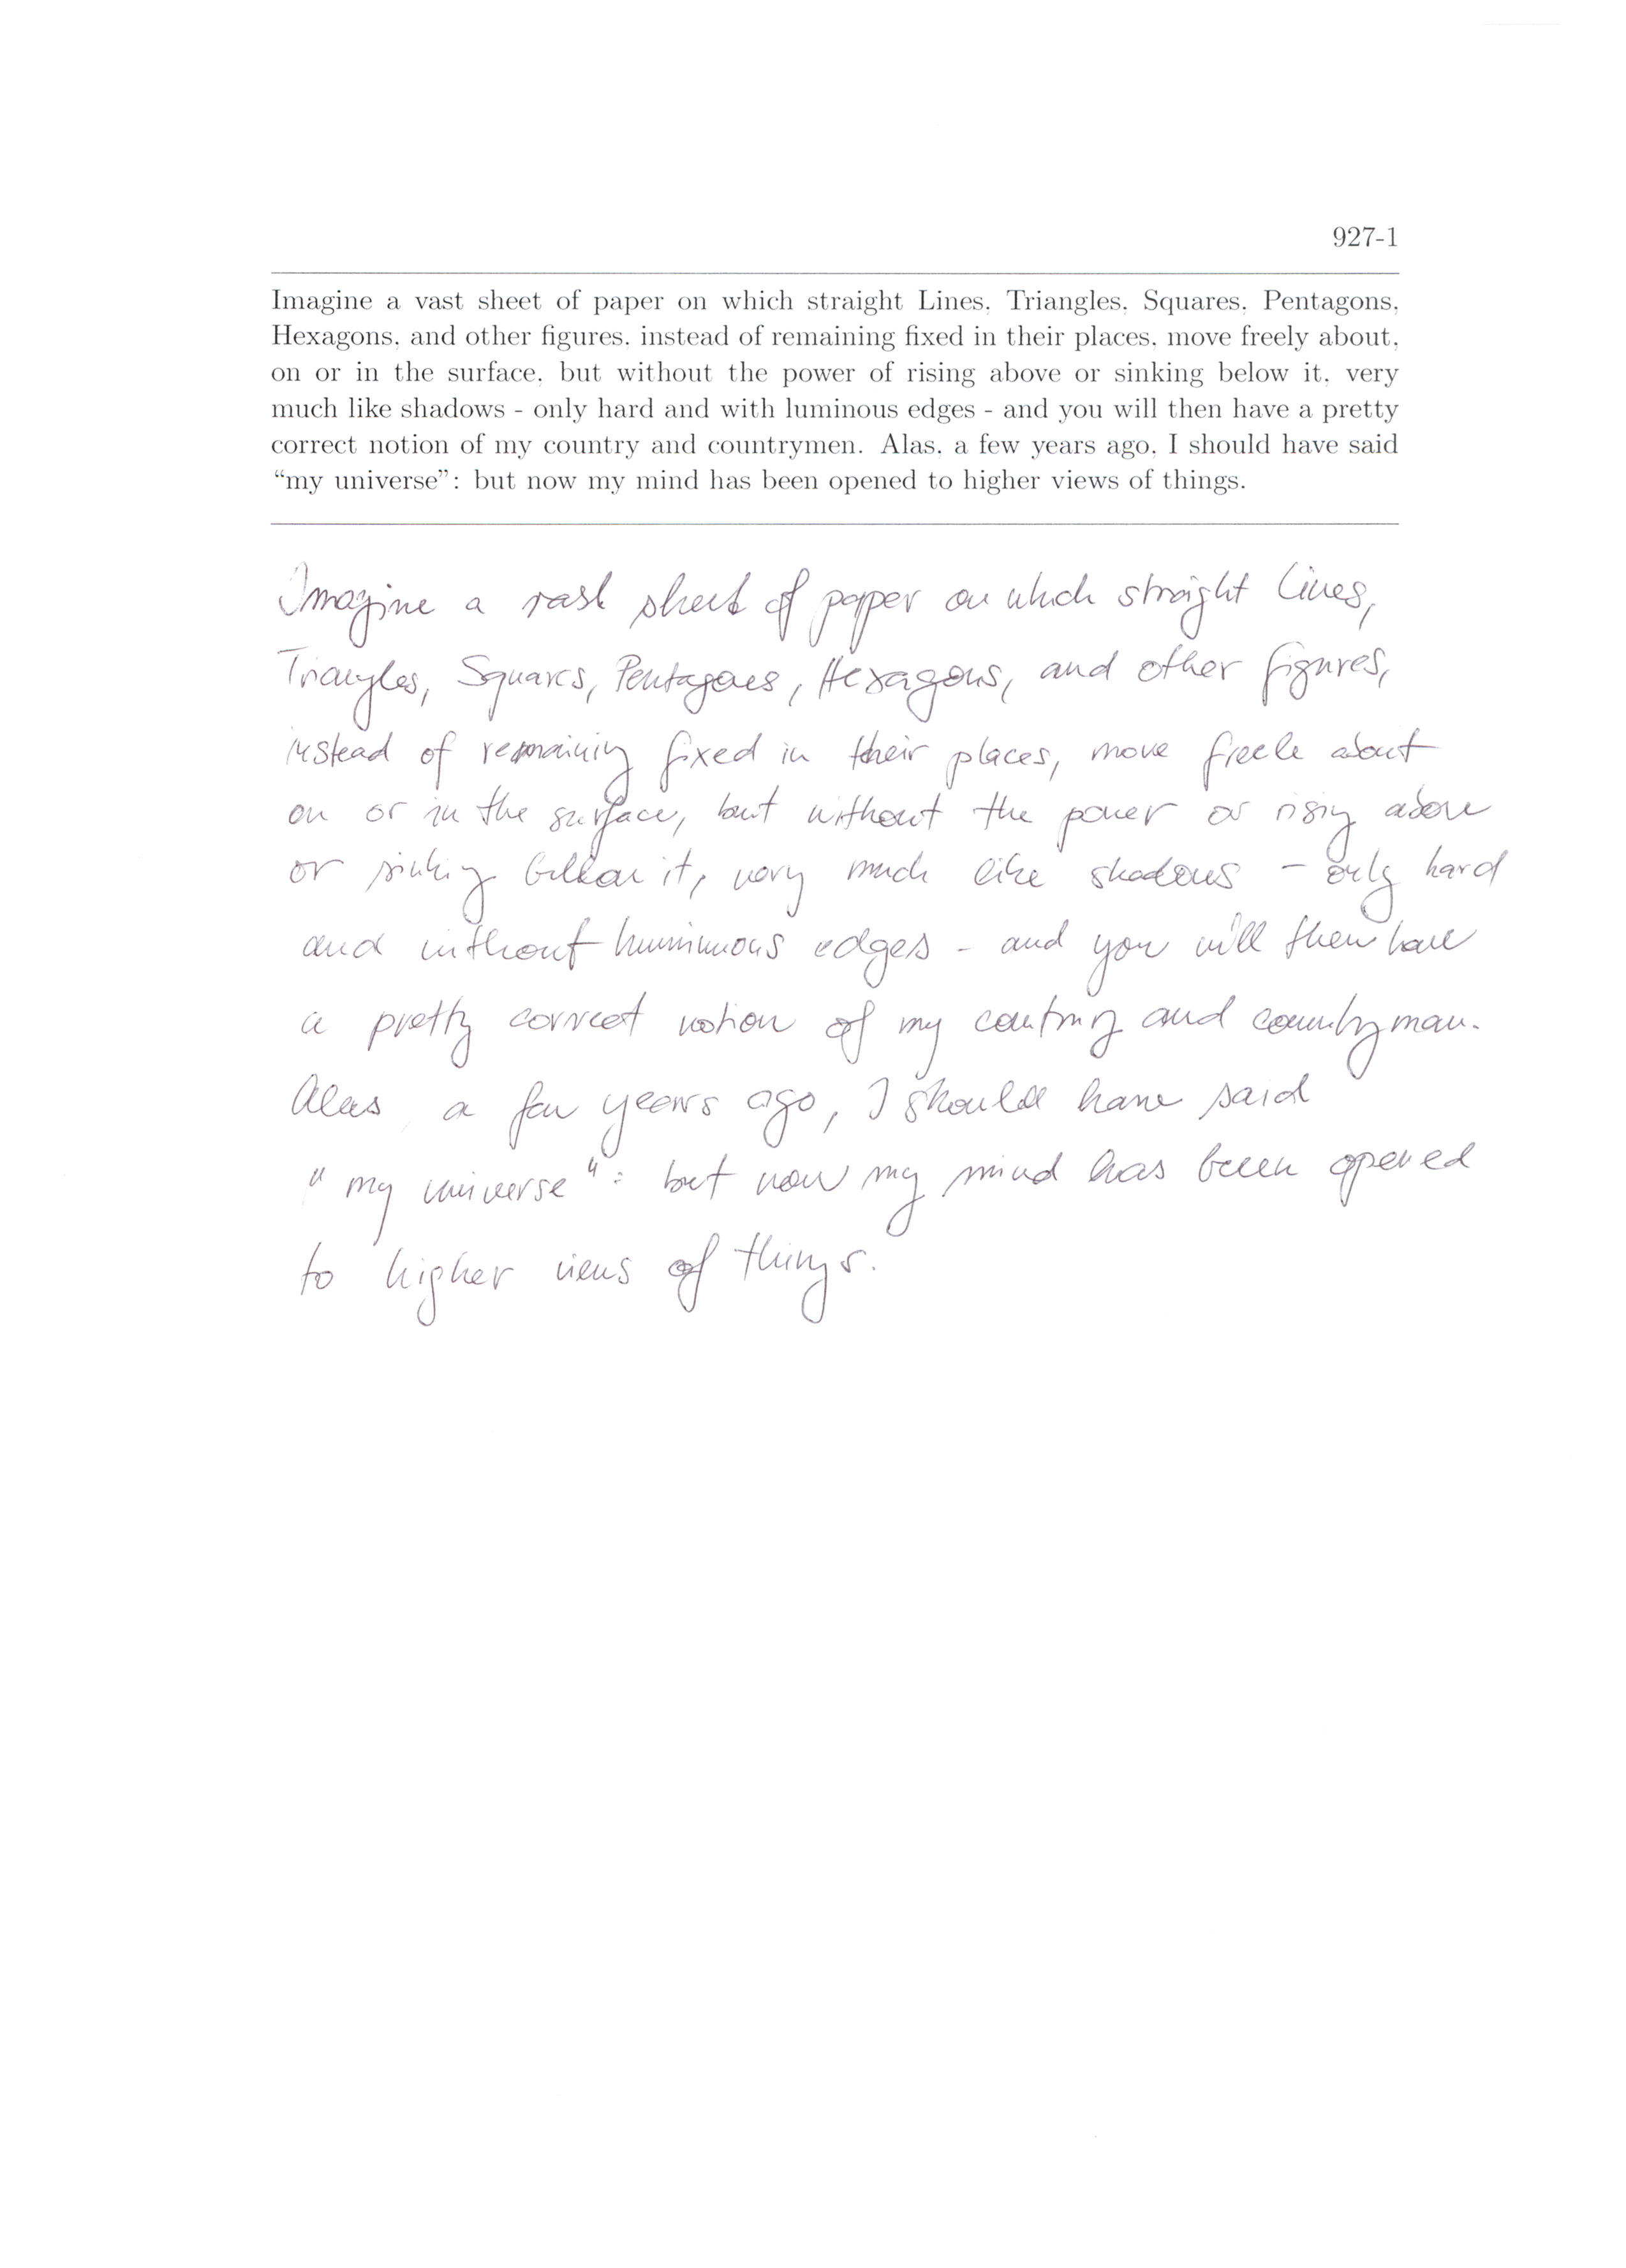 927-1
Imagine a vast sheet of paper on which straight Lines, Triangles, Squares, Pentagons,
Hexagons, and other figures, instead of remaining fixed in their places, move freely about,
on or in the surface, but without the power of rising above or sinking below it, very
much like shadows - only hard and with luminous edges - and you will then have a pretty
correct notion of my country and countrymen. Alas, a few years ago, I should have said
“my universe”: but now my mind has been opened to higher views of things.
Imagine a vast sheet of paper on which straight Lines,
Triangles, Squares, Pentagons, Hexagons, and other figures,
instead of remaining fixed in their places, move freele about
on or in the surface, but without the power or rising above
or sinking bellow it, very much like shadows - only hard
and without luminous edges - and you will then have
a pretty correct notion of my country and countryman.
Alas a few years ago, I should have said
"my universe": but now my mind has been opened
to higher views of things.